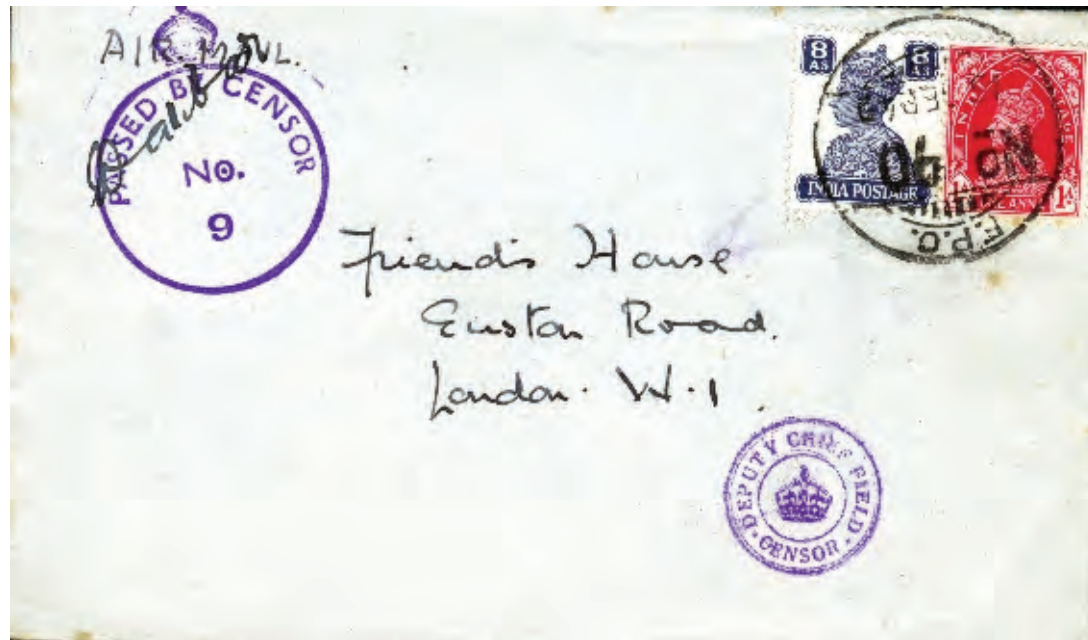 AIR MAIL.
PASSED BY CENSOR
No.
9
8 As 8 As
INDIA POSTAGE
INDIA POSTAGE
ONE ANNA 1A
F.P.O.
No 40
Friends House
Euston Road.
London. W.1.
DEPUTY CHIEF FIELD
CENSOR